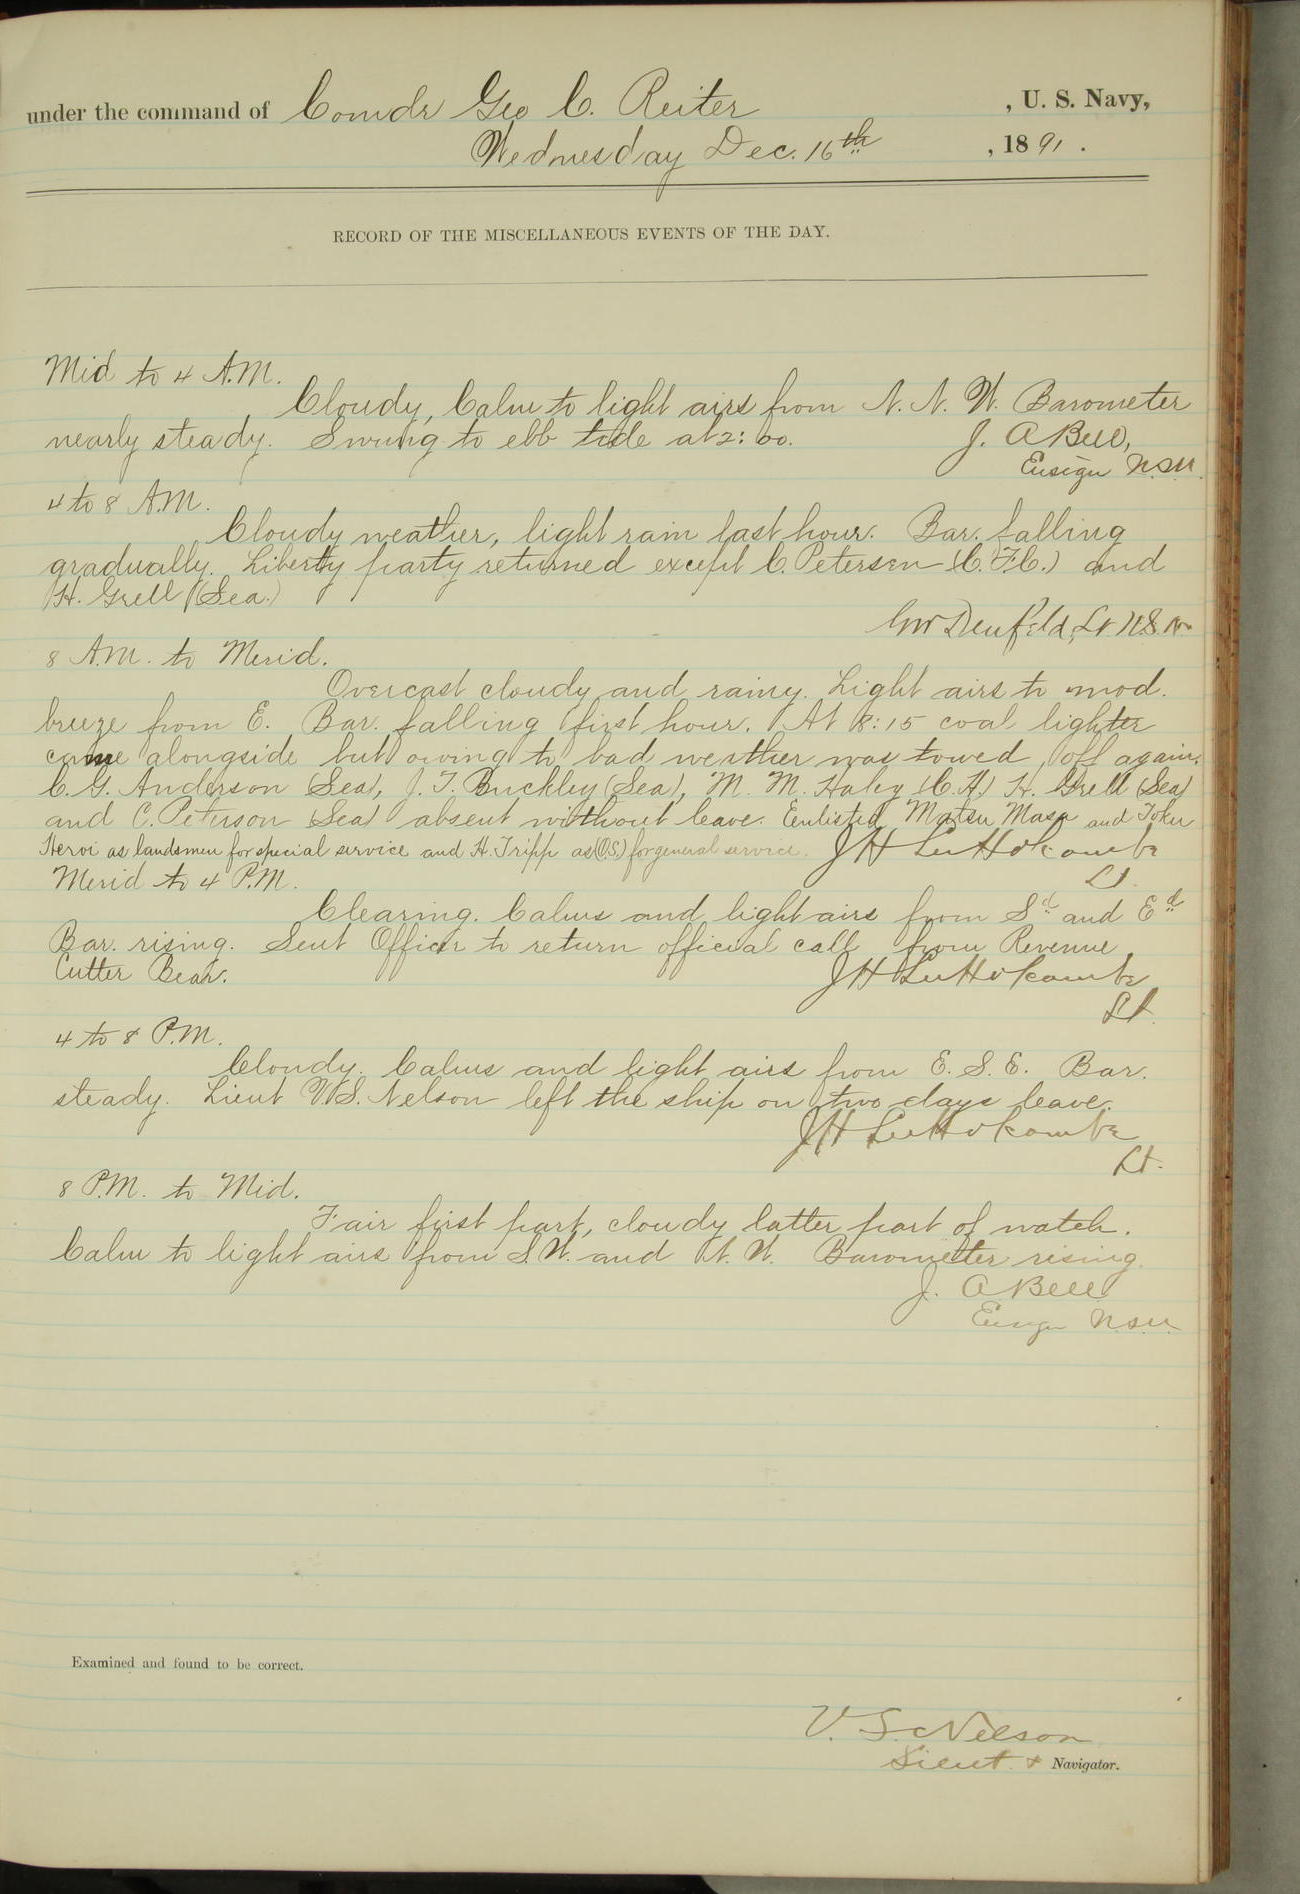 under the command of Comdr Geo C. Reiter , U. S. Navy,
Wednesday Dec. 16th , 1891 .
RECORD OF THE MISCELLANEOUS EVENTS OF THE DAY.
Mid to 4 A.M.
Cloudy, Calm to light airs from N. N. W. Barometer
nearly steady. Swung to ebb tide at 2:00. J. A Bell,
Ensign U.S.N.
4 to 8 A.M.
Cloudy weather, light rain last hour. Bar. falling
gradually. Liberty party returned except C. Petersen (C.F.C.) and
H. Grell (Sea.)
Lt. U.S.N.
8 A.M. to Merid.
Overcast cloudy and rainy. Light airs to mod.
breeze from E. Bar. falling first hour. At 8:15 coal lighter
came alongside but owing to bad weather was towed off again.
C. G. Anderson (Sea), J. T. Buckley (Sea), M. M. Haley (C.H.) H. Grell (Sea)
and C. Peterson (Sea) absent without leave. Enlisted Matsu Masa and Toku
Heroi as landsmen for special service and H. Tripp as (O.S.) for general service. J H
Lt.
Merid to 4 P.M.
Clearing. Calms and light airs from Sd and Ed
Bar. rising. Sent Officer to return official call from Revenue
Cutter Bear. J H
Lt.
4 to 8 P.M.
Cloudy. Calms and light airs from E. S. E. Bar.
steady. Lieut V.S. Nelson left the ship on two days leave.
J H
Lt.
8 P.M. to Mid.
Fair first part, cloudy latter part of watch.
Calm to light airs from S.W. and N. W. Barometer rising.
J. A Bell
Ensign U.S.N.
Examined and found to be correct.
V. S. Nelson
Lieut. & Navigator.